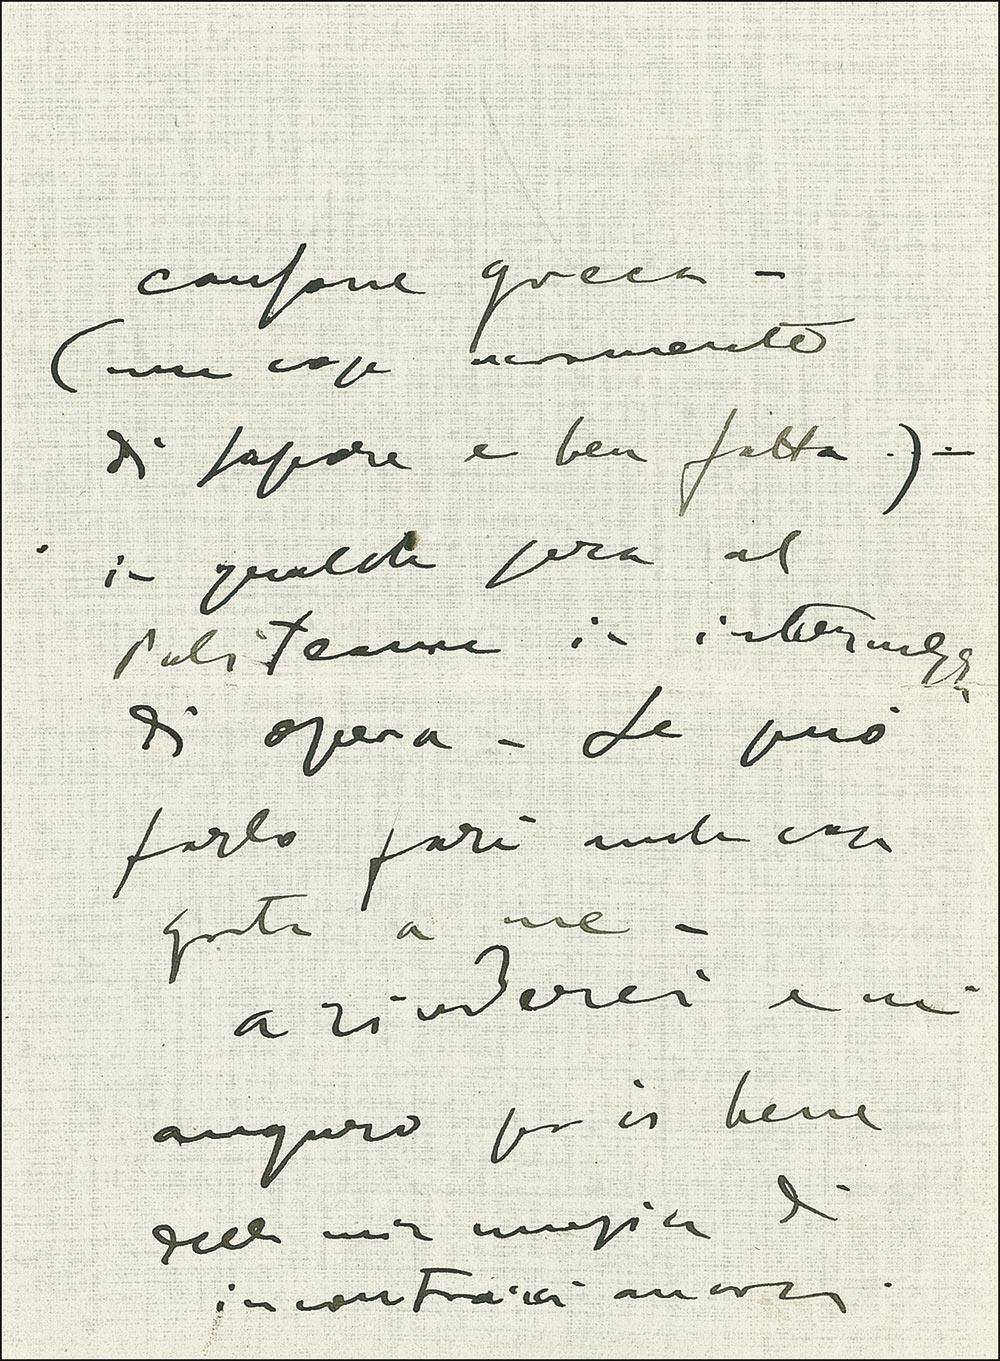 canzone greca -
(una cosa veramente
di sapore e ben fatta.) -
in qualche sera al
Politeama in intermezzi
di opera - Se può
farlo farà anche cosa
grata a me -
a rivederci e mi
auguro per il bene
della mia musica di
incontrarci ancora.